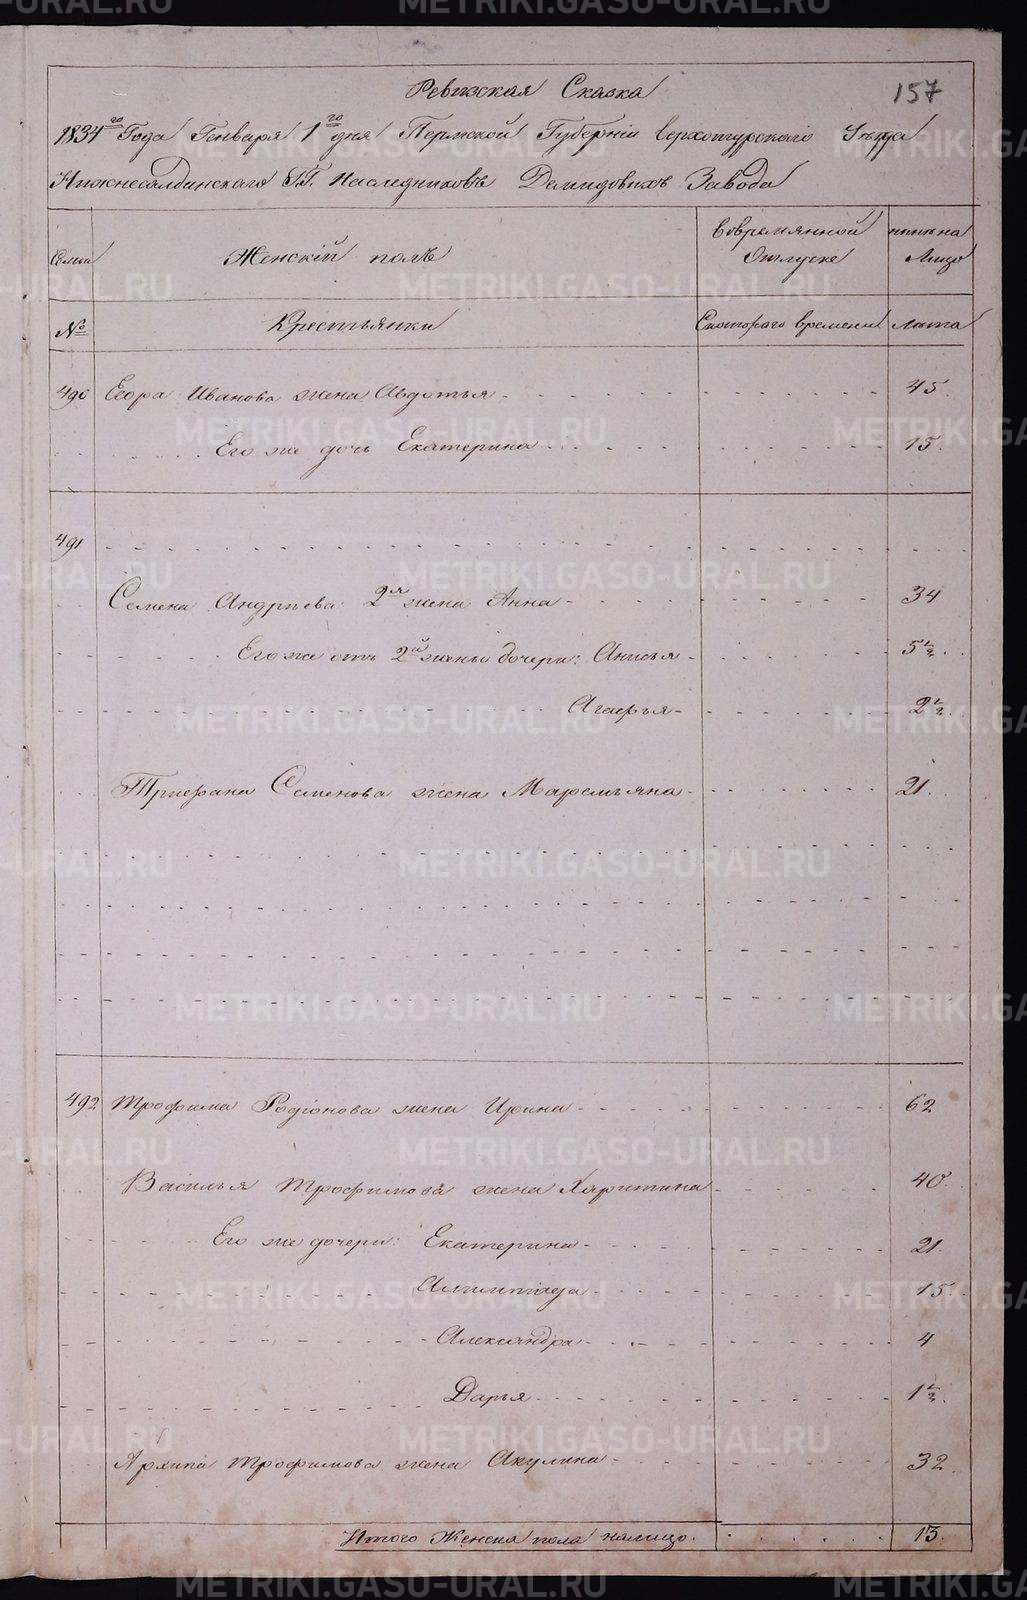 157
Ревизская Сказка
1834го Года Генваря 1го дня Пермской Губерніи Верхотурскаго Уѣзда
Нижнесалдинскаго Г.Г. Наследниковъ Демидовыхъ Завода
Семьи
Женскій полъ
Вовремянной Отлуске
ныне на Лицо
№
Крестьянки
Скотораго времени
Лѣта
490 Егора Иванова жена Авдотья 45
Его же дочь Екатерина 15
491
Семена Андрѣева 2я жена Анна 34
Его же отъ 2й жены дочери: Анисья 5 1/2
Агафья 2 1/2
Трифана Семенова жена Маремьяна 21
492 Трофима Родіонова жена Ирина 62
Василья Трофимова жена Харитина 40
Его же дочери: Екатерина 21
Алимпіяда 15
Александра 4
Дарья 1 1/2
Архипа Трофимова жена Акулина 32
Итого Женска пола налицо 13
METRIKI.GASO-URAL.RU